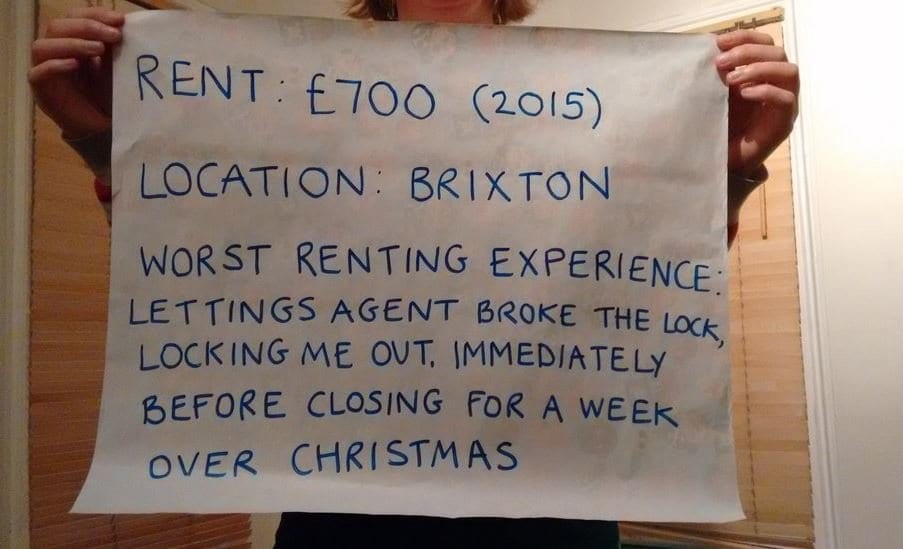 RENT: £700 (2015)
LOCATION: BRIXTON
WORST RENTING EXPERIENCE:
LETTINGS AGENT BROKE THE LOCK,
LOCKING ME OUT. IMMEDIATELY
BEFORE CLOSING FOR A WEEK
OVER CHRISTMAS